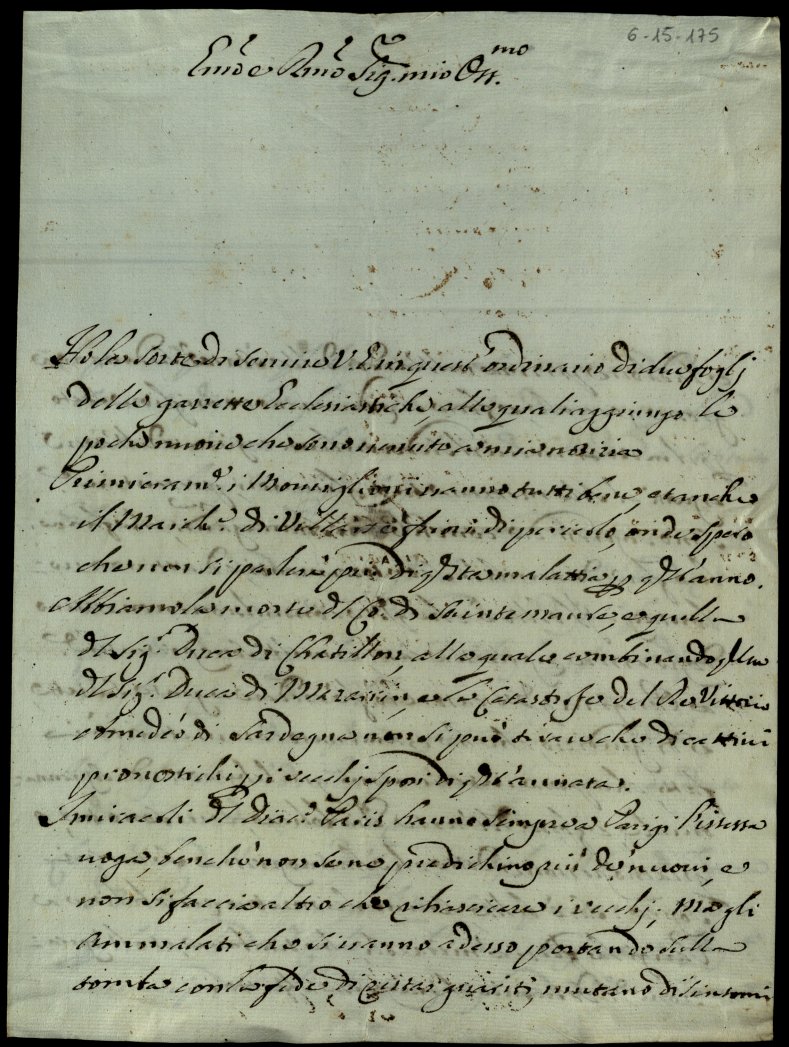 6-15-175
Em̃o e Rm̃o Sig. mio Oss.mo
Ho la sorte di servire V. E. in quest' ordinario di due foglj
delle gazzette Ecclesiastiche, alle quali aggiungo le
poche nuove che sono venute a mia notizia
Primieram.e i stanno tutti bene, et anche
il March.e di fuori di pericolo, onde spero
che non si parlerà più di q.sta malattia p q.st'anno.
Abbiamo la morte d.l Co. di Sainte maure, e quella
d.l Sig.r Duca di Chatillon, alle quali combinando q.lla
d.l Sig.r Duca di Mazarin, e la Catastrofe del Re Vittorio
Amedeo di Sardegna non si può tirare che di cattivi
pronostichi p i vecchj sposi di q.st'annata.
I miracoli d.l Diac.o Paris hanno sempre a Parigi l'istessa
voga, benchè non se ne predichino più de' nuovi, e
non si faccia altro che i vecchj; ma gli
ammalati che si vanno adesso portando sulla
tomba con la fede di esser guariti, mutano di sintomi